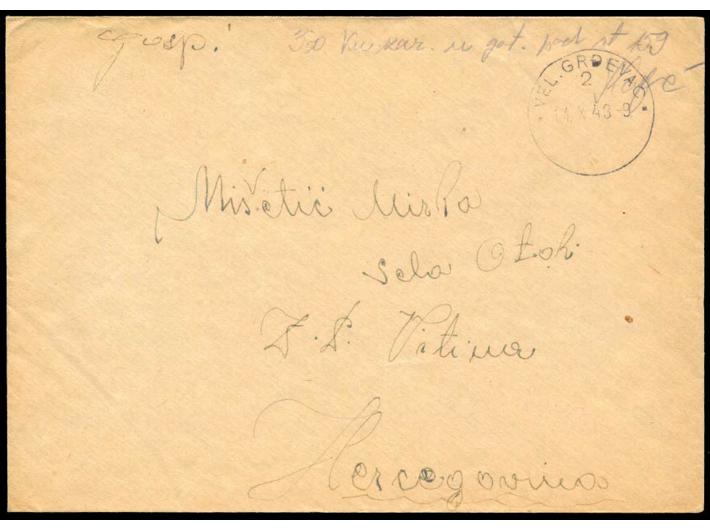 Gosp.
350 Kn kar. u got. pod st 159
VEL. GRĐEVAC
2
11.X.43-9
Mišetić Mirka
sela Otok
Z. P. Vitina
Hercegovina